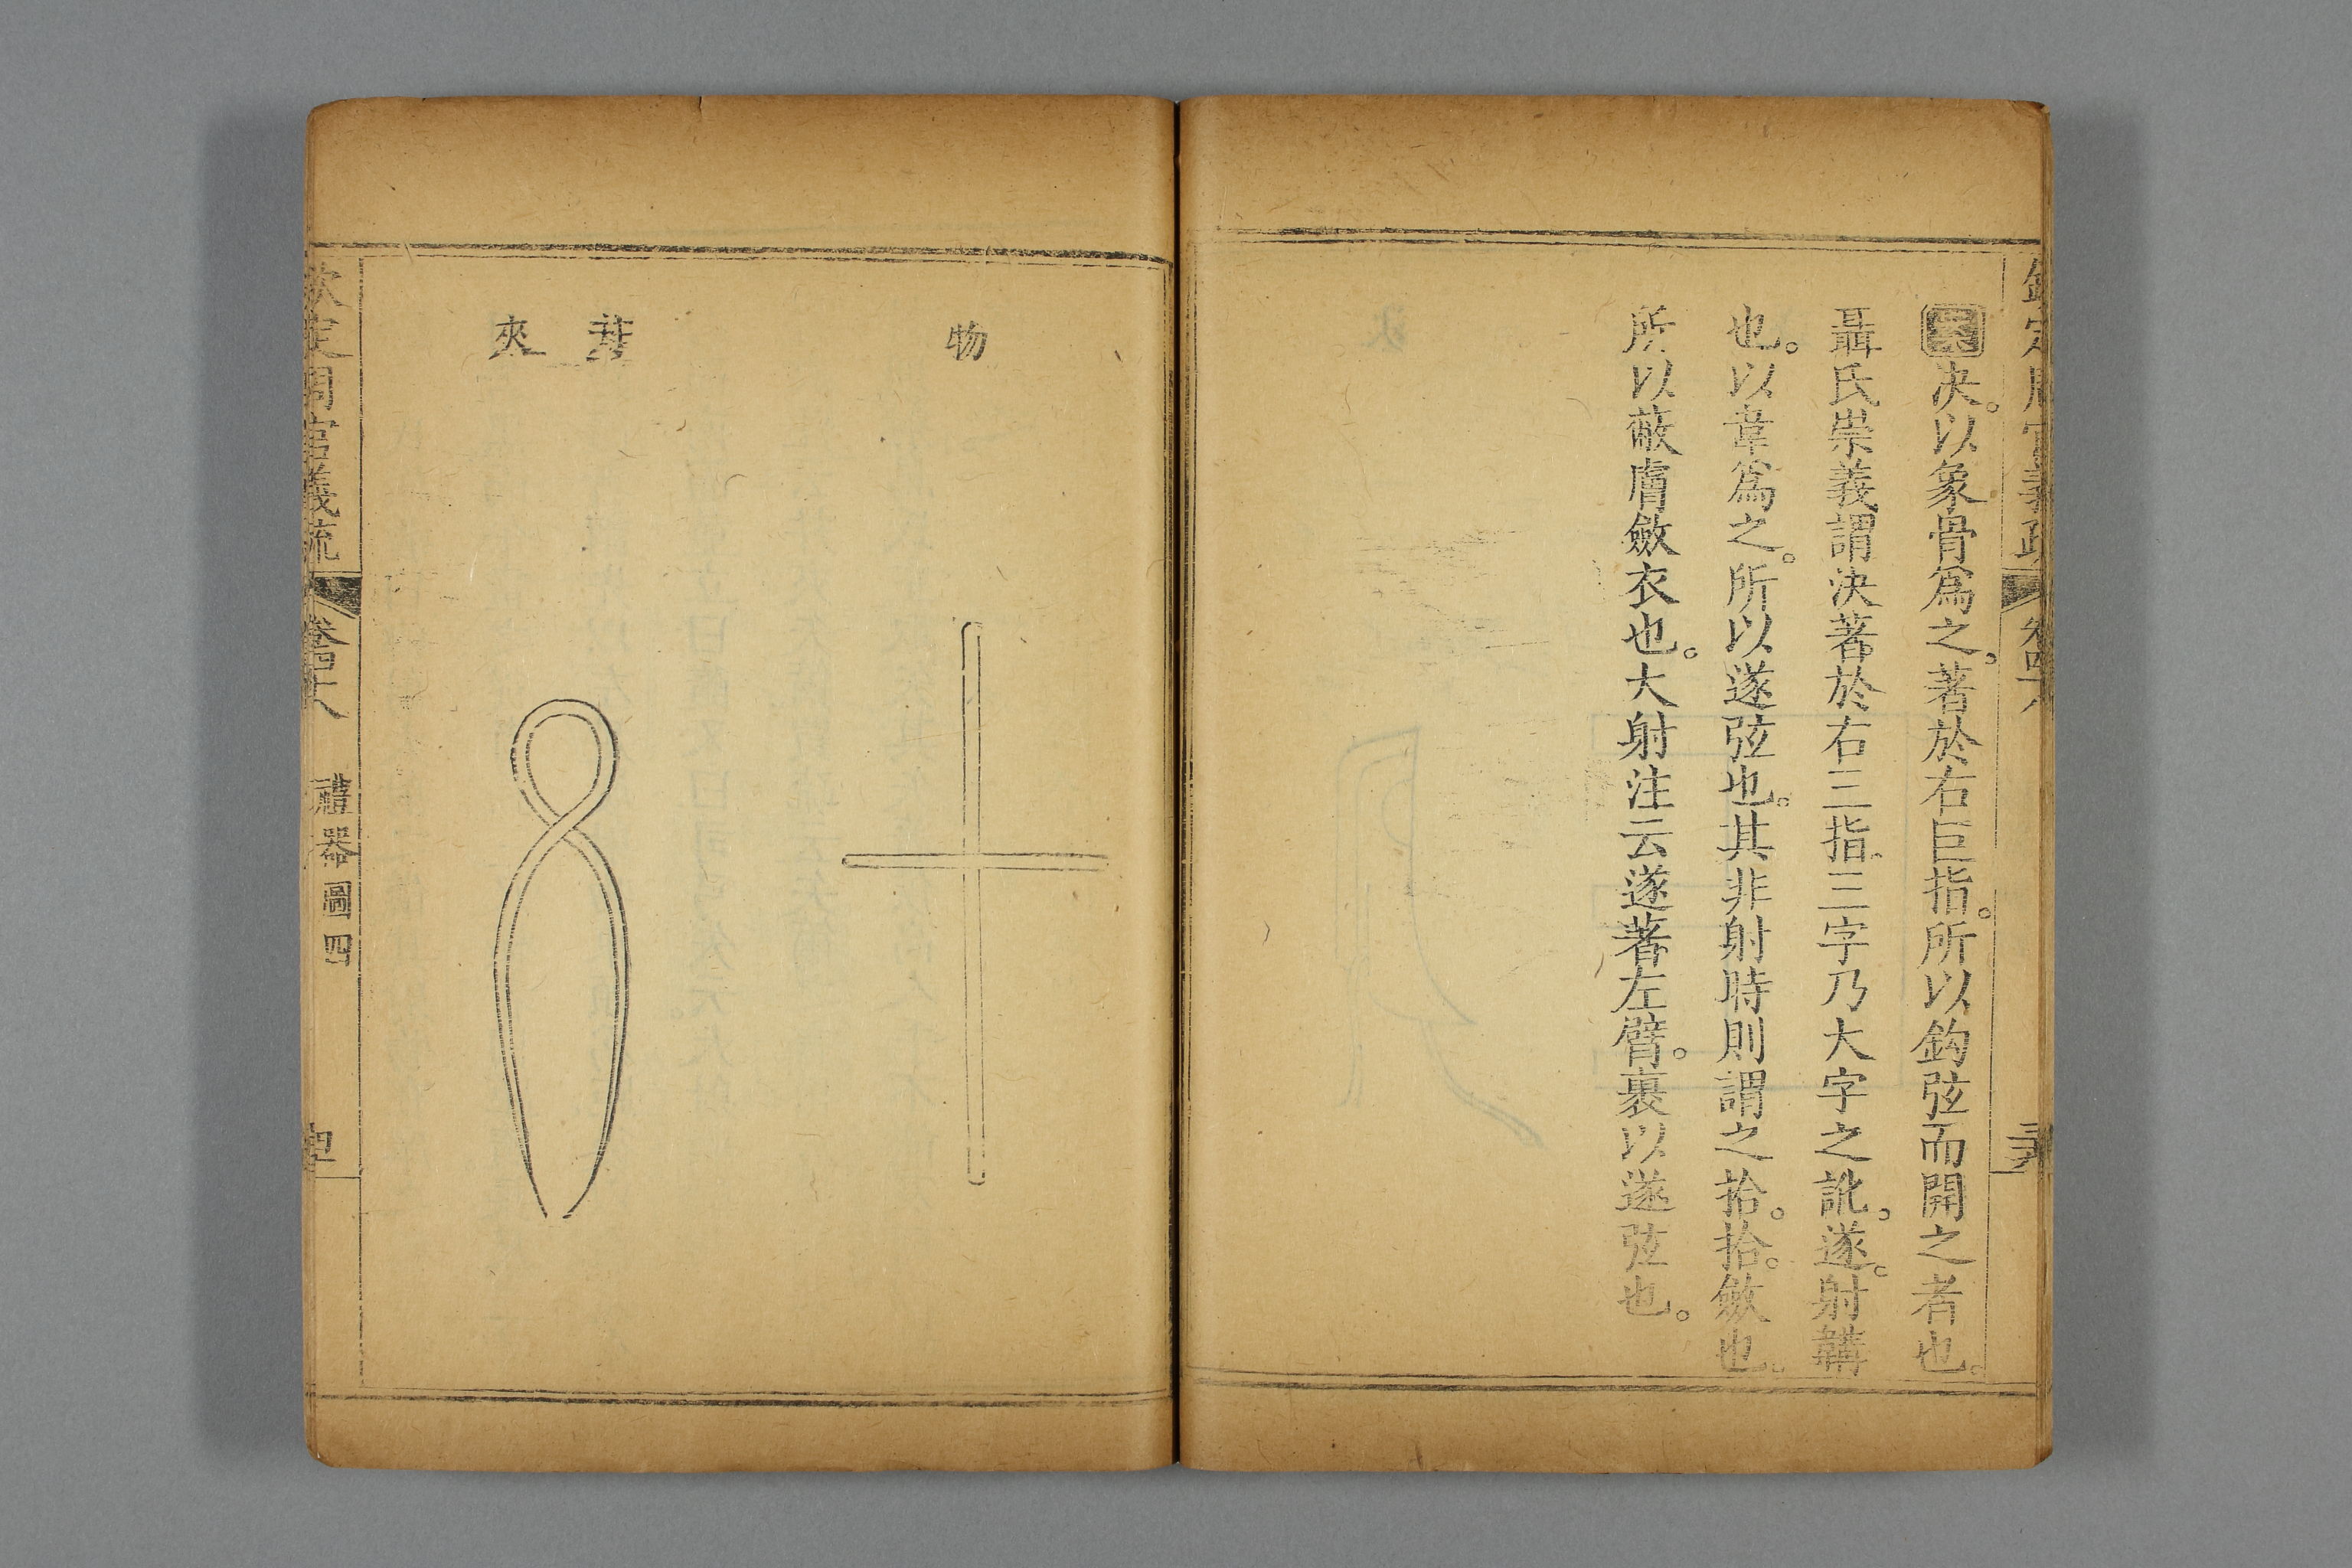 欽定周官義疏 卷四十八
決。以象骨爲之。著於右巨指。所以鈎弦而開之者也。
聶氏崇義謂決著於右三指。三字乃大字之訛。遂。射韝
也。以韋爲之。所以遂弦也。其非射時則謂之拾。拾。斂也。
所以蔽膚斂衣也。大射注云遂著左臂。裹以遂弦也。
物
茀
夾
欽定周官義疏 卷四十八 禮器圖四